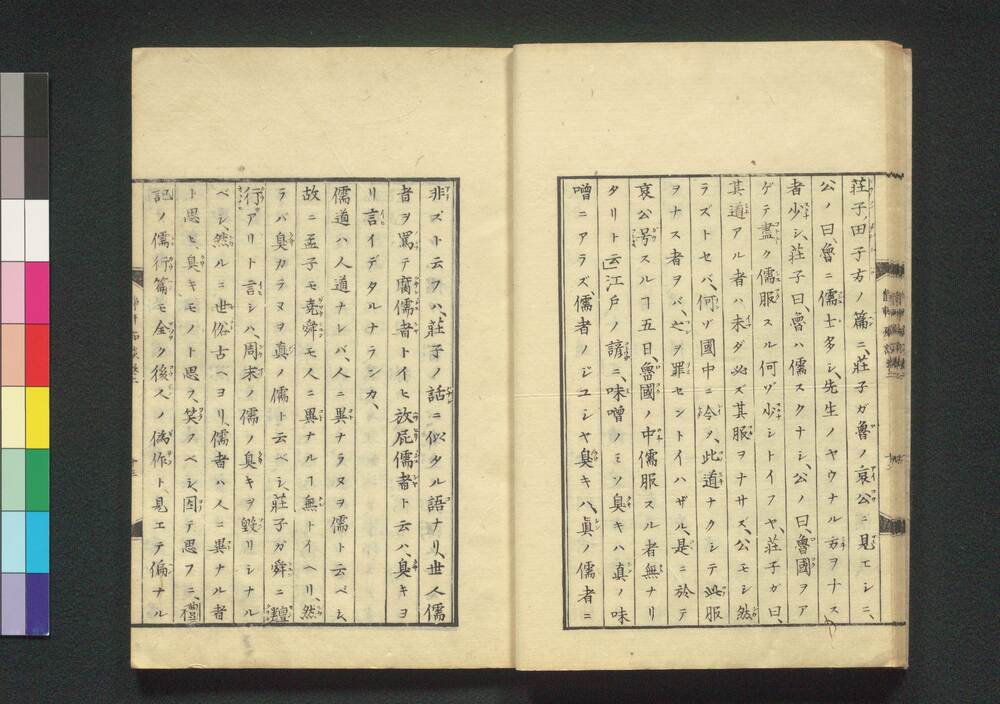 莊子、田子方ノ篇ニ、莊子ガ魯ノ哀公ニ見エシニ、
公ノ曰、魯ニ儒士多シ、先生ノヤウナル方ヲナス
者少シ、莊子曰、魯ハ儒スクナシ、公ノ曰、魯國ヲア
ゲテ盡ク儒服スル何ゾ少シトイフヤ、莊子ガ曰、
其道アル者ハ未ダ必ズ其服ヲナサズ、公モシ然
ラズトセバ、何ゾ國中ニ令ノ、此道ナクシテ此服
ヲナス者ヲバ、之ヲ罪セントイハザル、是ニ於テ
哀公号スルヿ五日、魯國ノ中儒服スル者無ナリ
タリト云」江戸ノ諺ニ、味噌ノミソ臭キハ真ノ味
噌ニアラズ、儒者ノジユシヤ臭キハ、真ノ儒者ニ
非ズト云フハ、莊子ノ話ニ似タル語ナリ、世人儒
者ヲ罵テ腐儒者トイヒ放屁儒者ト云ハ、臭キヨ
リ言イデタルナランカ、
儒道ハ人道ナレバ、人ニ異ナラヌヲ儒ト云ベシ、
故ニ孟子モ堯舜モ人ニ異ナルヿ無トイヘリ、然
ラバ臭カラヌヲ真ノ儒ト云ベシ、莊子ガ舜ニ羶
行アリト言シハ、周末ノ儒ノ臭キヲ毀リシナル
ベシ、然ルニ世俗古ヘヨリ、儒者ハ人ニ異ナル者
ト思ヒ、臭キモノト思フ、笑フベシ、因テ思フニ、禮
記ノ儒行篇モ全ク後人ノ偽作ト見エテ偏ナル